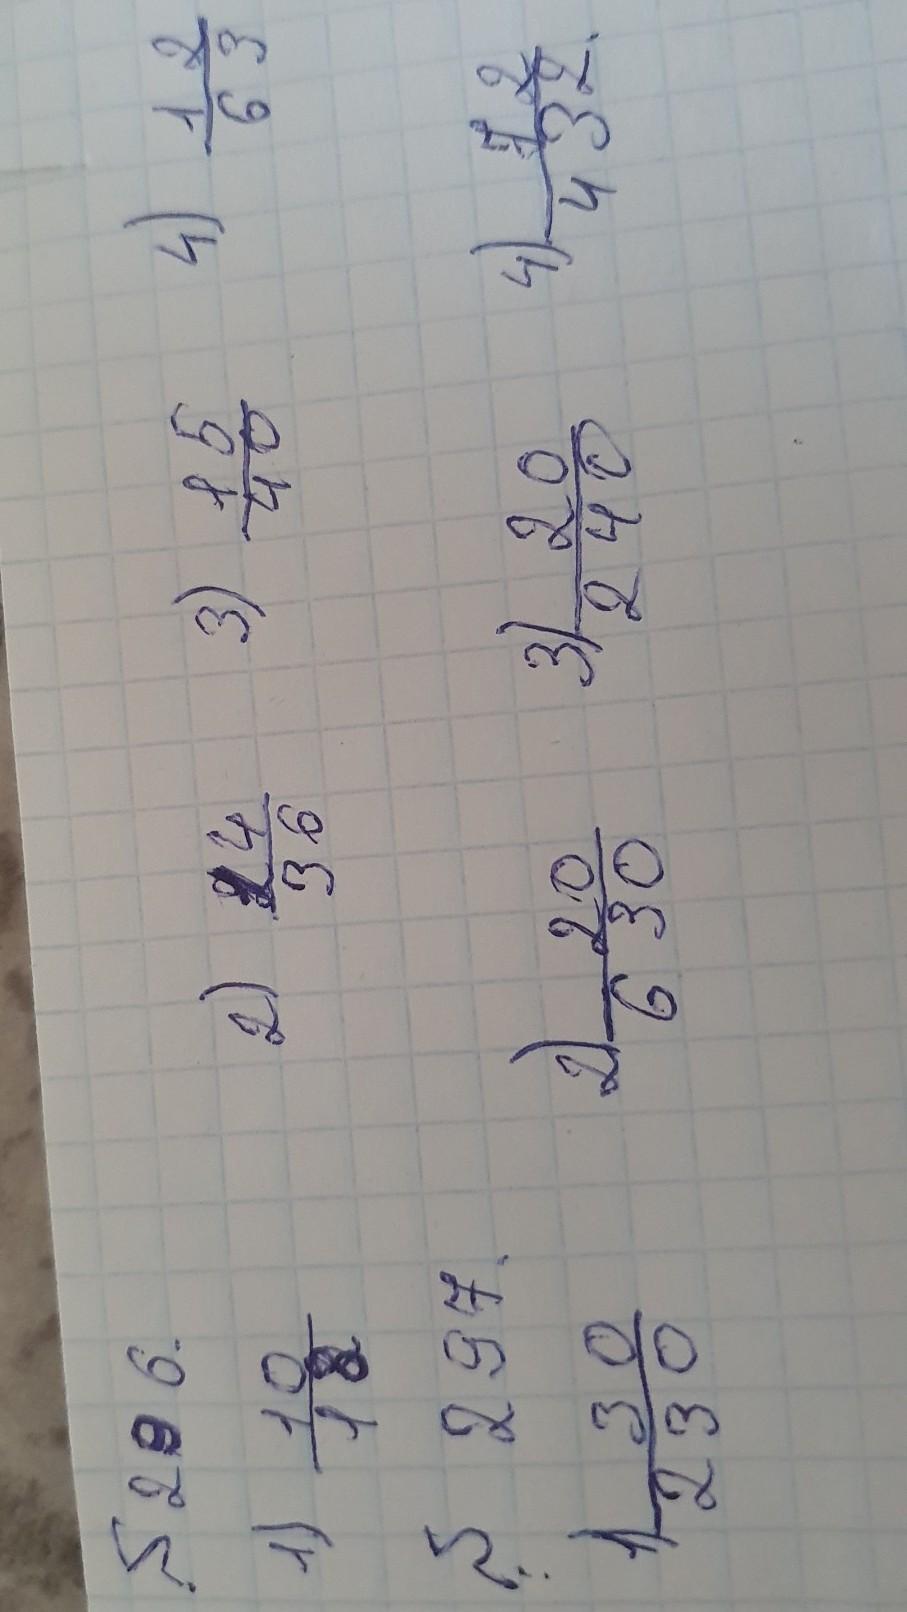 № 296.
1) 10/18 2) 24/36 3) 15/40 4) 12/63
№ 297.
1) 30/230 2) 20/630 3) 20/240 4) 12/432.